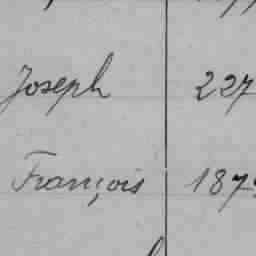 Joseph 227
François 187